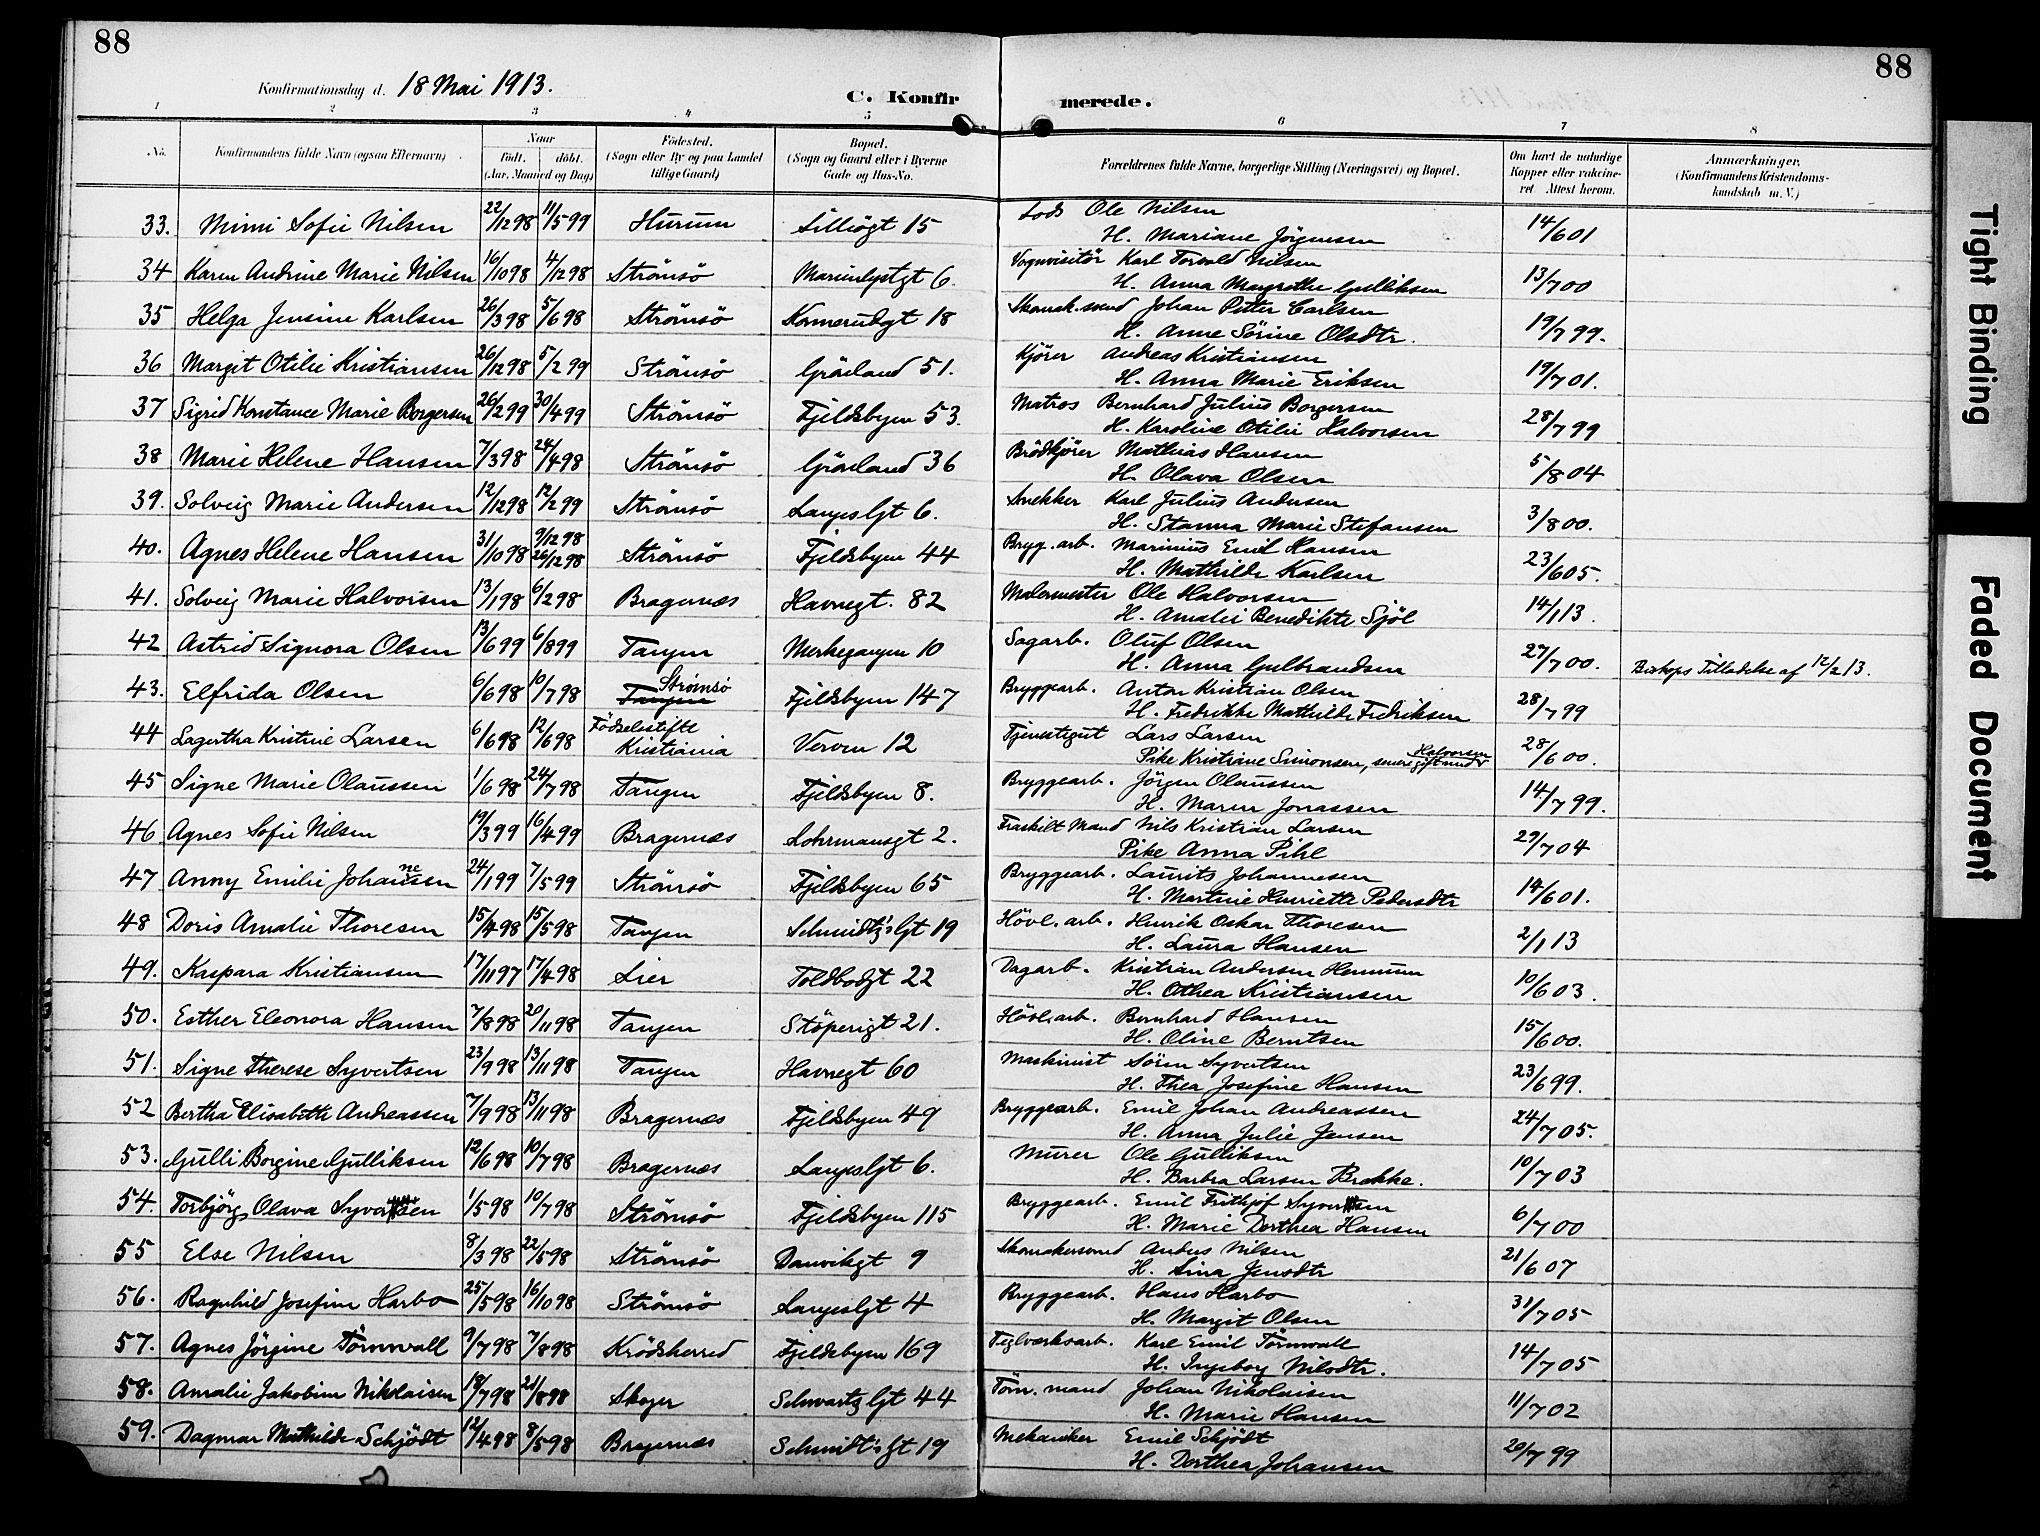 88
88
Konfirmationsdag d. 18 Mai 1913.
C. Konfirmerede.
1 2 3 4 5 6 7 8
No. Konfirmandens fulde Navn (ogsaa Efternavn) Naar født. døbt. (Aar, Maaned og Dag) Fødested. (Sogn eller By og paa Landet tillige Gaard) Bopæl. (Sogn og Gaard eller i Byerne Gade og Hus-No. Forældrenes fulde Navne, borgerlige Stilling (Næringsvei) og Bopæl. Om havt de naturlige Kopper eller vaccineret. Attest herom. Anmærkninger, (Konfirmandens Kristendomskundskab m. V.)
33. Mimi Sofie Nilsen 22/12 98 11/5 99 Hurum Lilliögt 15 Lods Ole Nilsen
H. Mariane Jörgensen 14/6 01
34 Karen Andrine Marie Nilsen 16/10 98 4/12 98 Strömsö Marienlystgt 6. Vognvisitör Karl Torvald Nilsen
H. Anna Margrethe Gulliksen 13/7 00
35 Helga Jensine Karlsen 26/3 98 5/6 98 Strömsö Konnerudgt 18 Skomak.svend Johan Petter Carlsen
H. Anne Sörine Olsdtr. 19/7 99.
36 Margit Otilie Kristiansen 26/12 98 5/2 99 Strömsö Grönland 51. Kjörer Andreas Kristiansen
H. Anna Marie Eriksen 19/7 01.
37 Sigrid Konstance Marie Borgersen 26/2 99 30/4 99 Strömsö Fjeldsbyen 53. Matros Bernhard Julius Borgersen
H. Karoline Otilie Halvorsen 28/7 99
38 Marie Helene Hansen 7/3 98 24/4 98 Strömsö Grönland 36 Brödkjörer Mathias Hansen
H. Olava Olsen 5/8 04
39. Solveig Marie Andersen 12/12 98 12/2 99 Strömsö Langes Gt 6. Snekker Karl Julius Andersen
H. Stanna Marie Stefansen 3/8 00.
40. Agnes Helene Hansen 31/10 98 9/12 98 26/12 98 Strömsö Fjeldsbyen 44 Bryg. arb. Marinius Emil Hansen
H. Mathilde Karlsen 23/6 05.
41. Solveig Marie Halvorsen 13/1 98 6/2 98 Bragernæs Havnegt. 82 Malermester Ole Halvorsen
H. Amalie Benedikte Sjöl 14/1 13.
42 Astrid Signora Olsen 13/6 99 6/8 99 Tangen Merkegangen 10 Sagarb. Oluf Olsen
H. Anna Gulbrandsen 27/7 00. Biskops Tilladelse af 12/2 13.
43. Elfrida Olsen 6/6 98 10/7 98 Tangen Strömsö Fjeldsbyen 147 Bryggearb. Anton Kristian Olsen
H. Fredrikke Mathilde Fredriksen 28/7 99
44 Lagertha Kristine Larsen 6/6 98 12/6 98 Födselsstifte Kristiania Verven 12 Tjenestegut Lars Larsen
Pike Kristiane Simonsen, senere gift med Halvorsen 28/6 00.
45 Signe Marie Olaussen 1/6 98 24/7 98 Tangen Fjeldsbyen 8. Bryggearb. Jörgen Olaussen
H. Maren Jonassen 14/7 99.
46. Agnes Sofie Nilsen 19/3 99 16/4 99 Bragernæs Lohrmansgt 2. Fraskilt Mand Nils Kristian Larsen
Pike Anna Pihl 29/7 04
47 Anny Emilie Johannesen 24/1 99 7/5 99 Strömsö Fjeldsbyen 65 Bryggearb. Laurits Johannesen
H. Martine Henriette Pedersdtr 14/6 01.
48 Doris Amalie Thoresen 15/4 98 15/5 98 Tangen Schmidt's Gt 19 Hövl. arb. Henrik Oskar Thoresen
H. Laura Hansen 2/1 13
49. Kaspara Kristiansen 17/11 97 17/4 98 Lier Toldbodgt 22 Dagarb. Kristian Andersen
H. Othea Kristiansen 10/6 03.
50. Esther Eleonora Hansen 7/8 98 20/11 98 Tangen Stöperigt 21. Hövl. arb. Bernhard Hansen
H. Oline Berntsen 15/6 00.
51. Signe Therese Syvertsen 23/9 98 13/11 98 Tangen Havnegt 60 Maskinist Sören Syvertsen
H. Thea Josefine Hansen 23/6 99.
52 Bertha Elisabeth Andreassen 7/9 98 13/11 98 Bragernæs Fjeldsbyen 49 Bryggearb. Emil Johan Andreassen
H. Anna Julie Jensen 24/7 05.
53. Gulli Borgine Gulliksen 12/6 98 10/7 98 Bragernæs Langes Gt 6. Murer Ole Gulliksen
H. Barbra Larsen Brekke. 10/7 03
54. Torbjörg Olava Syversen 1/5 98 10/7 98 Strömsö Fjeldsbyen 115 Bryggearb. Emil Frithjof Syversen
H. Marie Dorthea Hansen 6/7 00
55 Else Nilsen 8/3 98 22/5 98 Strömsö Danvikgt 9 Skomakersvend Anders Nilsen
H. Lina Jensdtr 21/6 07
56. Ragnhild Josefine Harbo 25/5 98 16/10 98 Strömsö Langes Gt 4 Bryggearb. Hans Harbo
H. Margit Olsen 31/7 05
57. Agnes Jörgine Törnwall 9/7 98 7/8 98 Krödsherred Fjeldsbyen 169 Teglverksarb. Karl Emil Törnwall
H. Ingeborg Nilsdtr. 14/7 05
58. Amalie Jakobine Nikolaisen 18/7 98 21/8 98 Skoger Schwartz Gt 44 Töm. mand Johan Nikolaisen
H. Marie Hansen 11/7 02
59. Dagmar Mathilde Schjödt 12/4 98 8/5 98 Bragernæs Schmidt's Gt 19 Mekaniker Emil Schjödt
H. Dorthea Johansen 20/7 99
Tight Binding
Faded Document